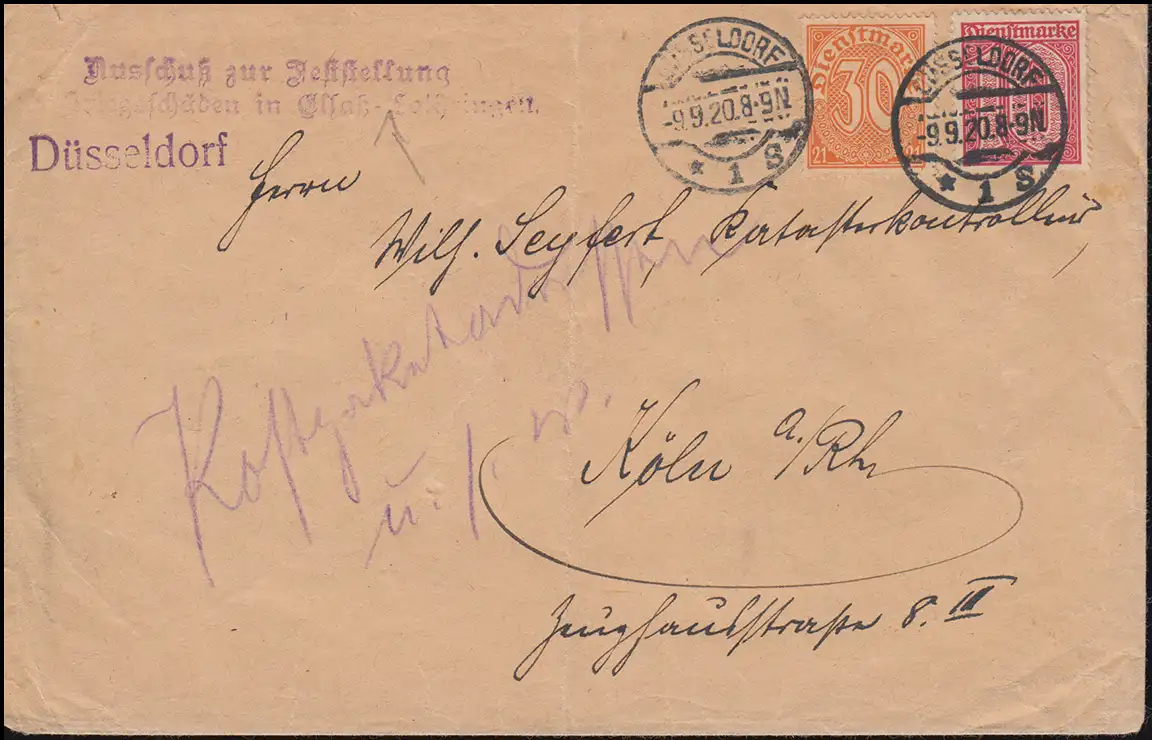 Ausschuß zur Feststellung
Kriegsschäden in Elsaß-Lothringen.
Düsseldorf
Dienstmarke
30
21 21
Dienstmarke
DÜSSELDORF
-9.9.20.8-9N
* 1 S
DÜSSELDORF
-9.9.20.8-9N
* 1 S
Herrn
Wilh. Seyfert, Katasterkontrolleur,
u. s. w.
Köln a/Rh
Zeughausstraße 8. III